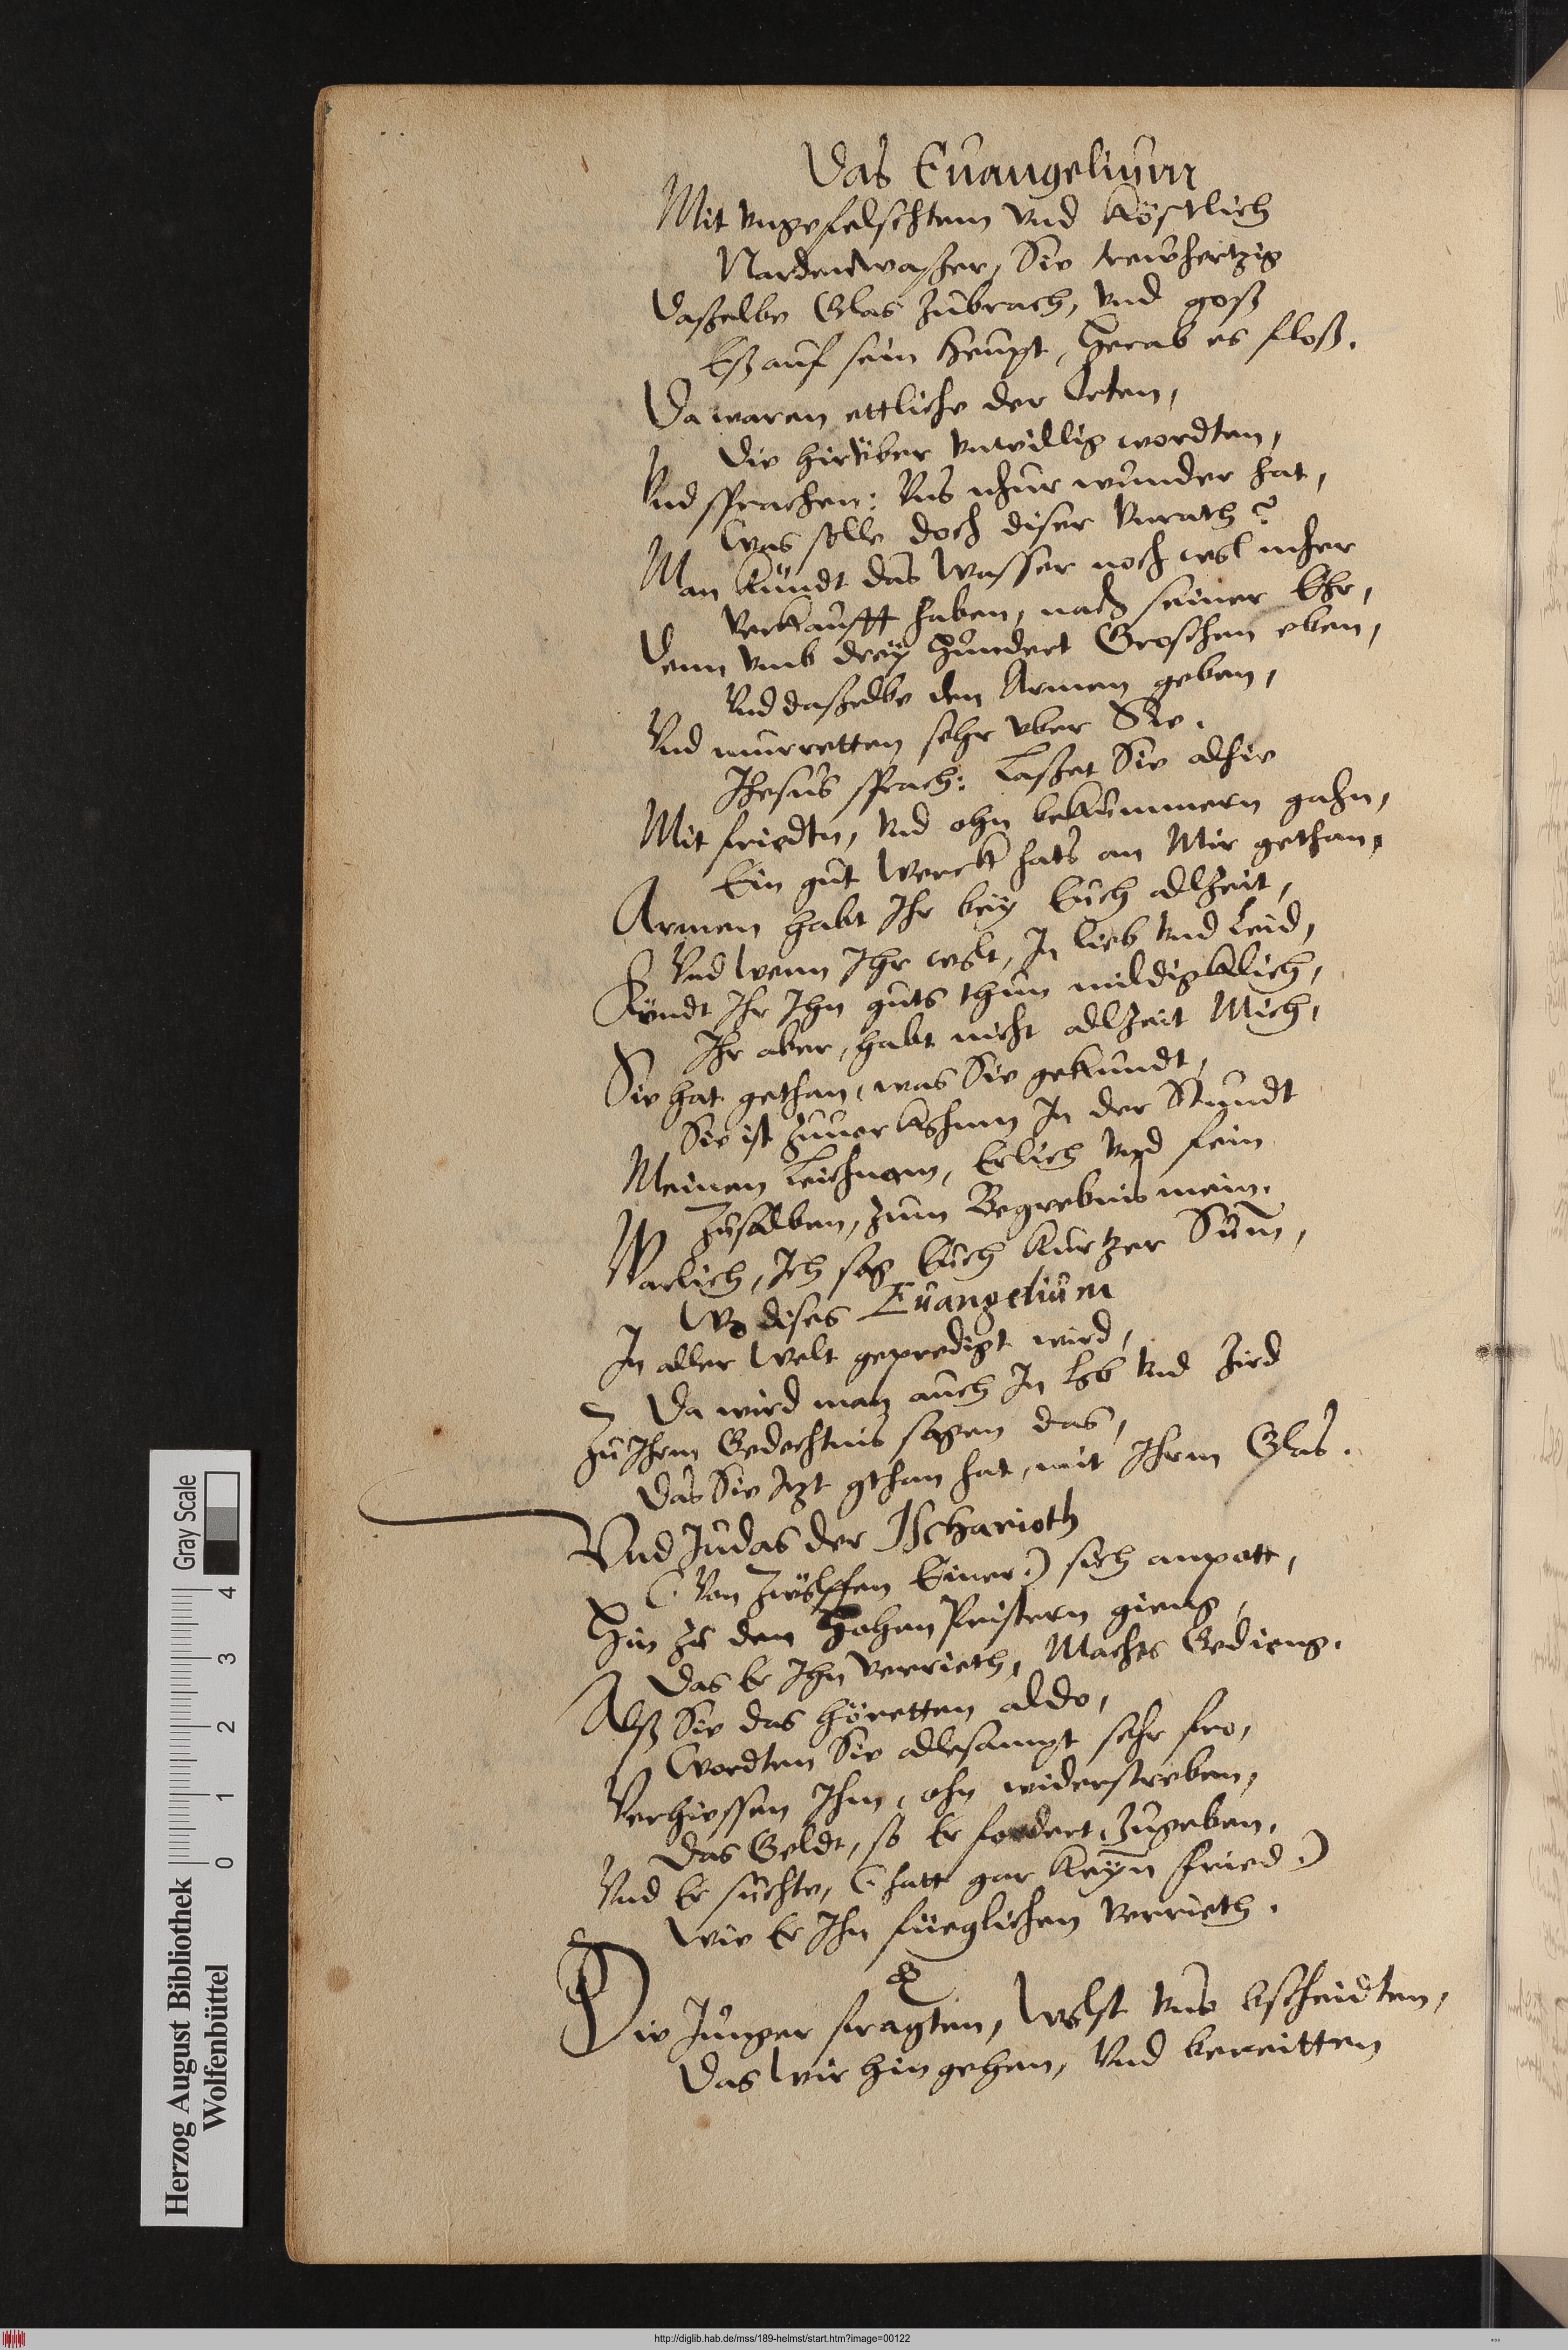 Das Euangelium
Mit vngefelschtem vnd köstlich
Nardenwaßer, Sie trewhertzig
Daßelbe Glas zubrach, vnd goß
Eß auf sein heupt, Herab es floß.
Da waren ettliche der Orten,
Die hirüber vnwillig wordten,
Vnd sprachen: Vns nhur wunder hat,
Was solle doch diser Vnrath?
Man kündt das Wasser noch wol mher
Verkaufft haben, nach seiner Ehr,
Denn vmb drey Hundert Groschen eben,
Vnd daßelbe den Armen geben,
Vnd murretten sehr vber Sie.
Jhesus sprach: Laßet Sie alhie
Mit friedtn, vnd ohn bekümmern gahn,
Ein gut Werck hats an Mir gethan,
Armen habt Ihr bey Euch allzeit,
Vnd Wenn Ihr wolt, In lieb vnd Leid,
Kündt Ihr Ihn guts thun mildigklich,
Ihr aber, habt nicht allzeit Mich,
Sie hat gethan, was Sie gekundt,
Sie ist zuuer kohmm In der Stundt
Meinen Leichnam, Erlich vnd fein
Zusalben, zum Begrebnis mein.
Warlich, Ich sag Euch kurtzer Sum̄,
Wo dises Euangelium
In aller Welt gepredigt wird,
Da wird man auch In Lob vnd Zird
Zu Ihrm Gedechtnis sagen das,
Das Sie Itzt gthan hat, mit Ihrm Glas.
Vnd Judas der JScharioth
(: Von Zwölffen Einer:) sich anpott,
Hin zu den Hohen Pristern gieng,
Das Er Ihn verrieth, Machts Gedieng.
Alß Sie das höretten aldo,
Wordten Sie allesampt sehr fro,
Verhiessen Ihm, ohn widerstreben,
Das Geldt, so Er fordert, Zugeben,
Vnd Er suchte, (: hatt gar keyn̄ fried:)
Wie Er Ihn füeglichen verrieth.
Die Junger fragten, Wolst vns bscheidten,
Das Wir hin gehen, Vnd bereitten
Herzog August Bibliothek
Wolfenbüttel
0 1 2 3 4
Gray Scale
http://diglib.hab.de/mss/189-helmst/start.htm?image=00122